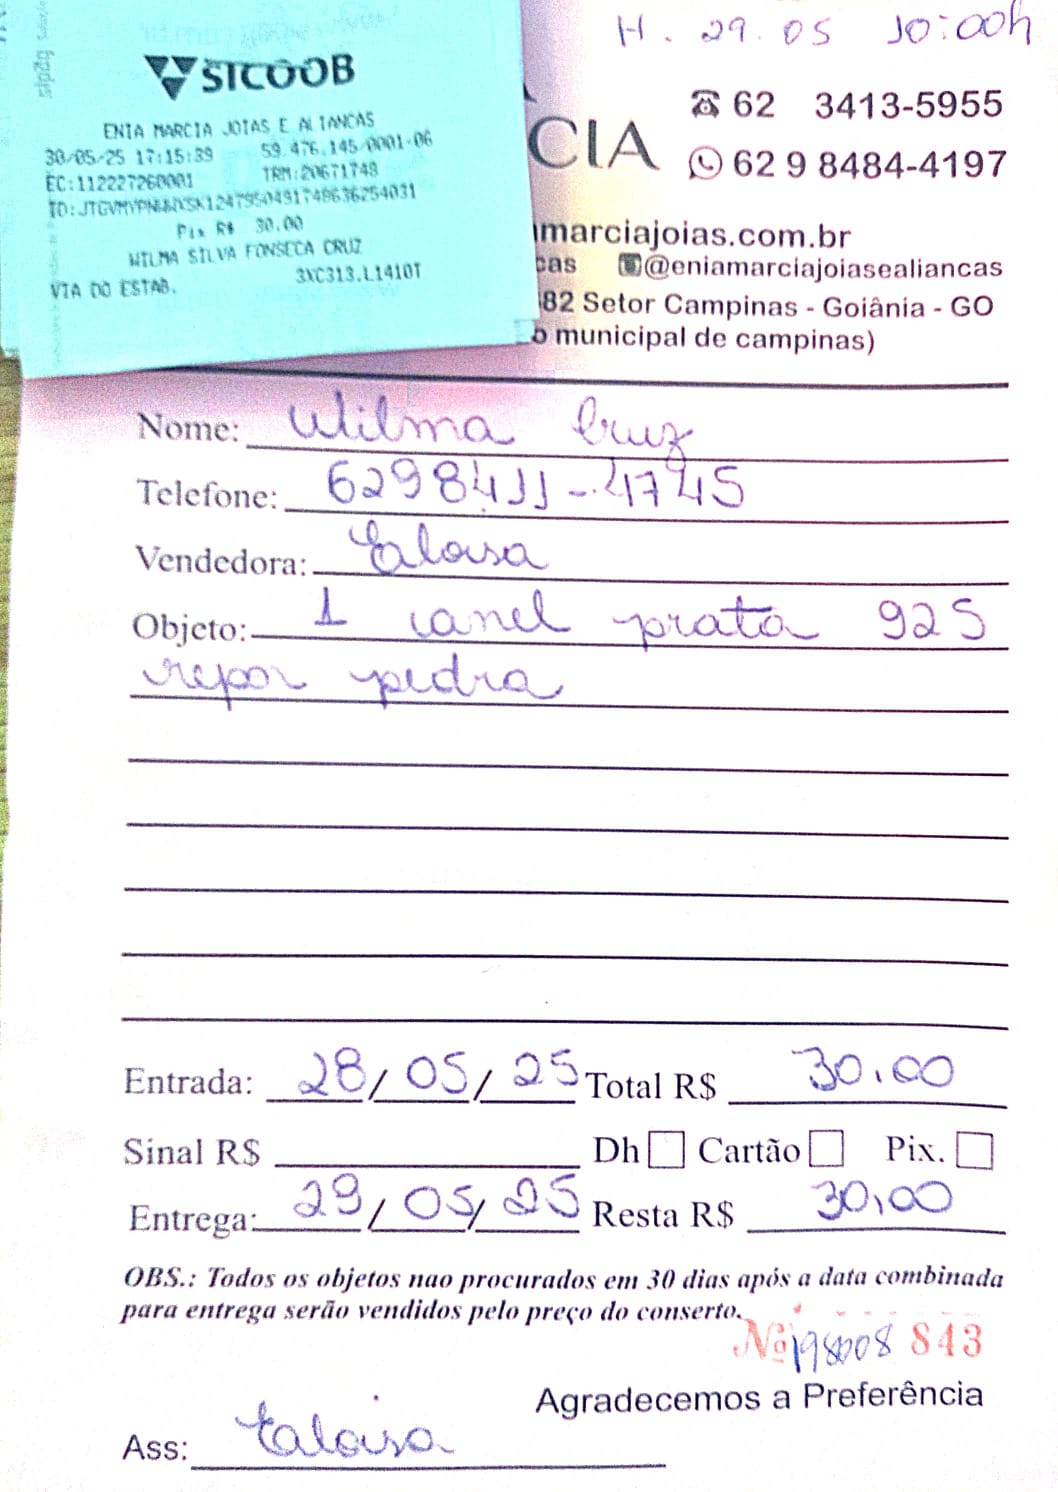 H. 29.05 10:00h
SICOOB
ENIA MARCIA JOIAS E ALIANCAS
30/05/25 17:15:39 59.476.145/0001-06
EC:112227260001 TRM:20671748
Pix R$ 30.00
WILMA SILVA FONSECA CRUZ
VIA DO ESTAB. 3XC313.L1410T
CIA
62 3413-5955
62 9 8484-4197
marciajoias.com.br
cas @eniamarciajoiasealiancas
82 Setor Campinas - Goiânia - GO
o municipal de campinas)
Nome: Wilma Cruz
Telefone: 6298411-4745
Vendedora: Eloisa
Objeto: 1 anel prata 925
repor pedra
Entrada: 28/05/25 Total R$ 30,00
Sinal R$ Dh Cartão Pix.
Entrega: 29/05/25 Resta R$ 30,00
OBS.: Todos os objetos nao procurados em 30 dias após a data combinada
para entrega serão vendidos pelo preço do conserto.
Nº 843
Agradecemos a Preferência
Ass: Eloisa